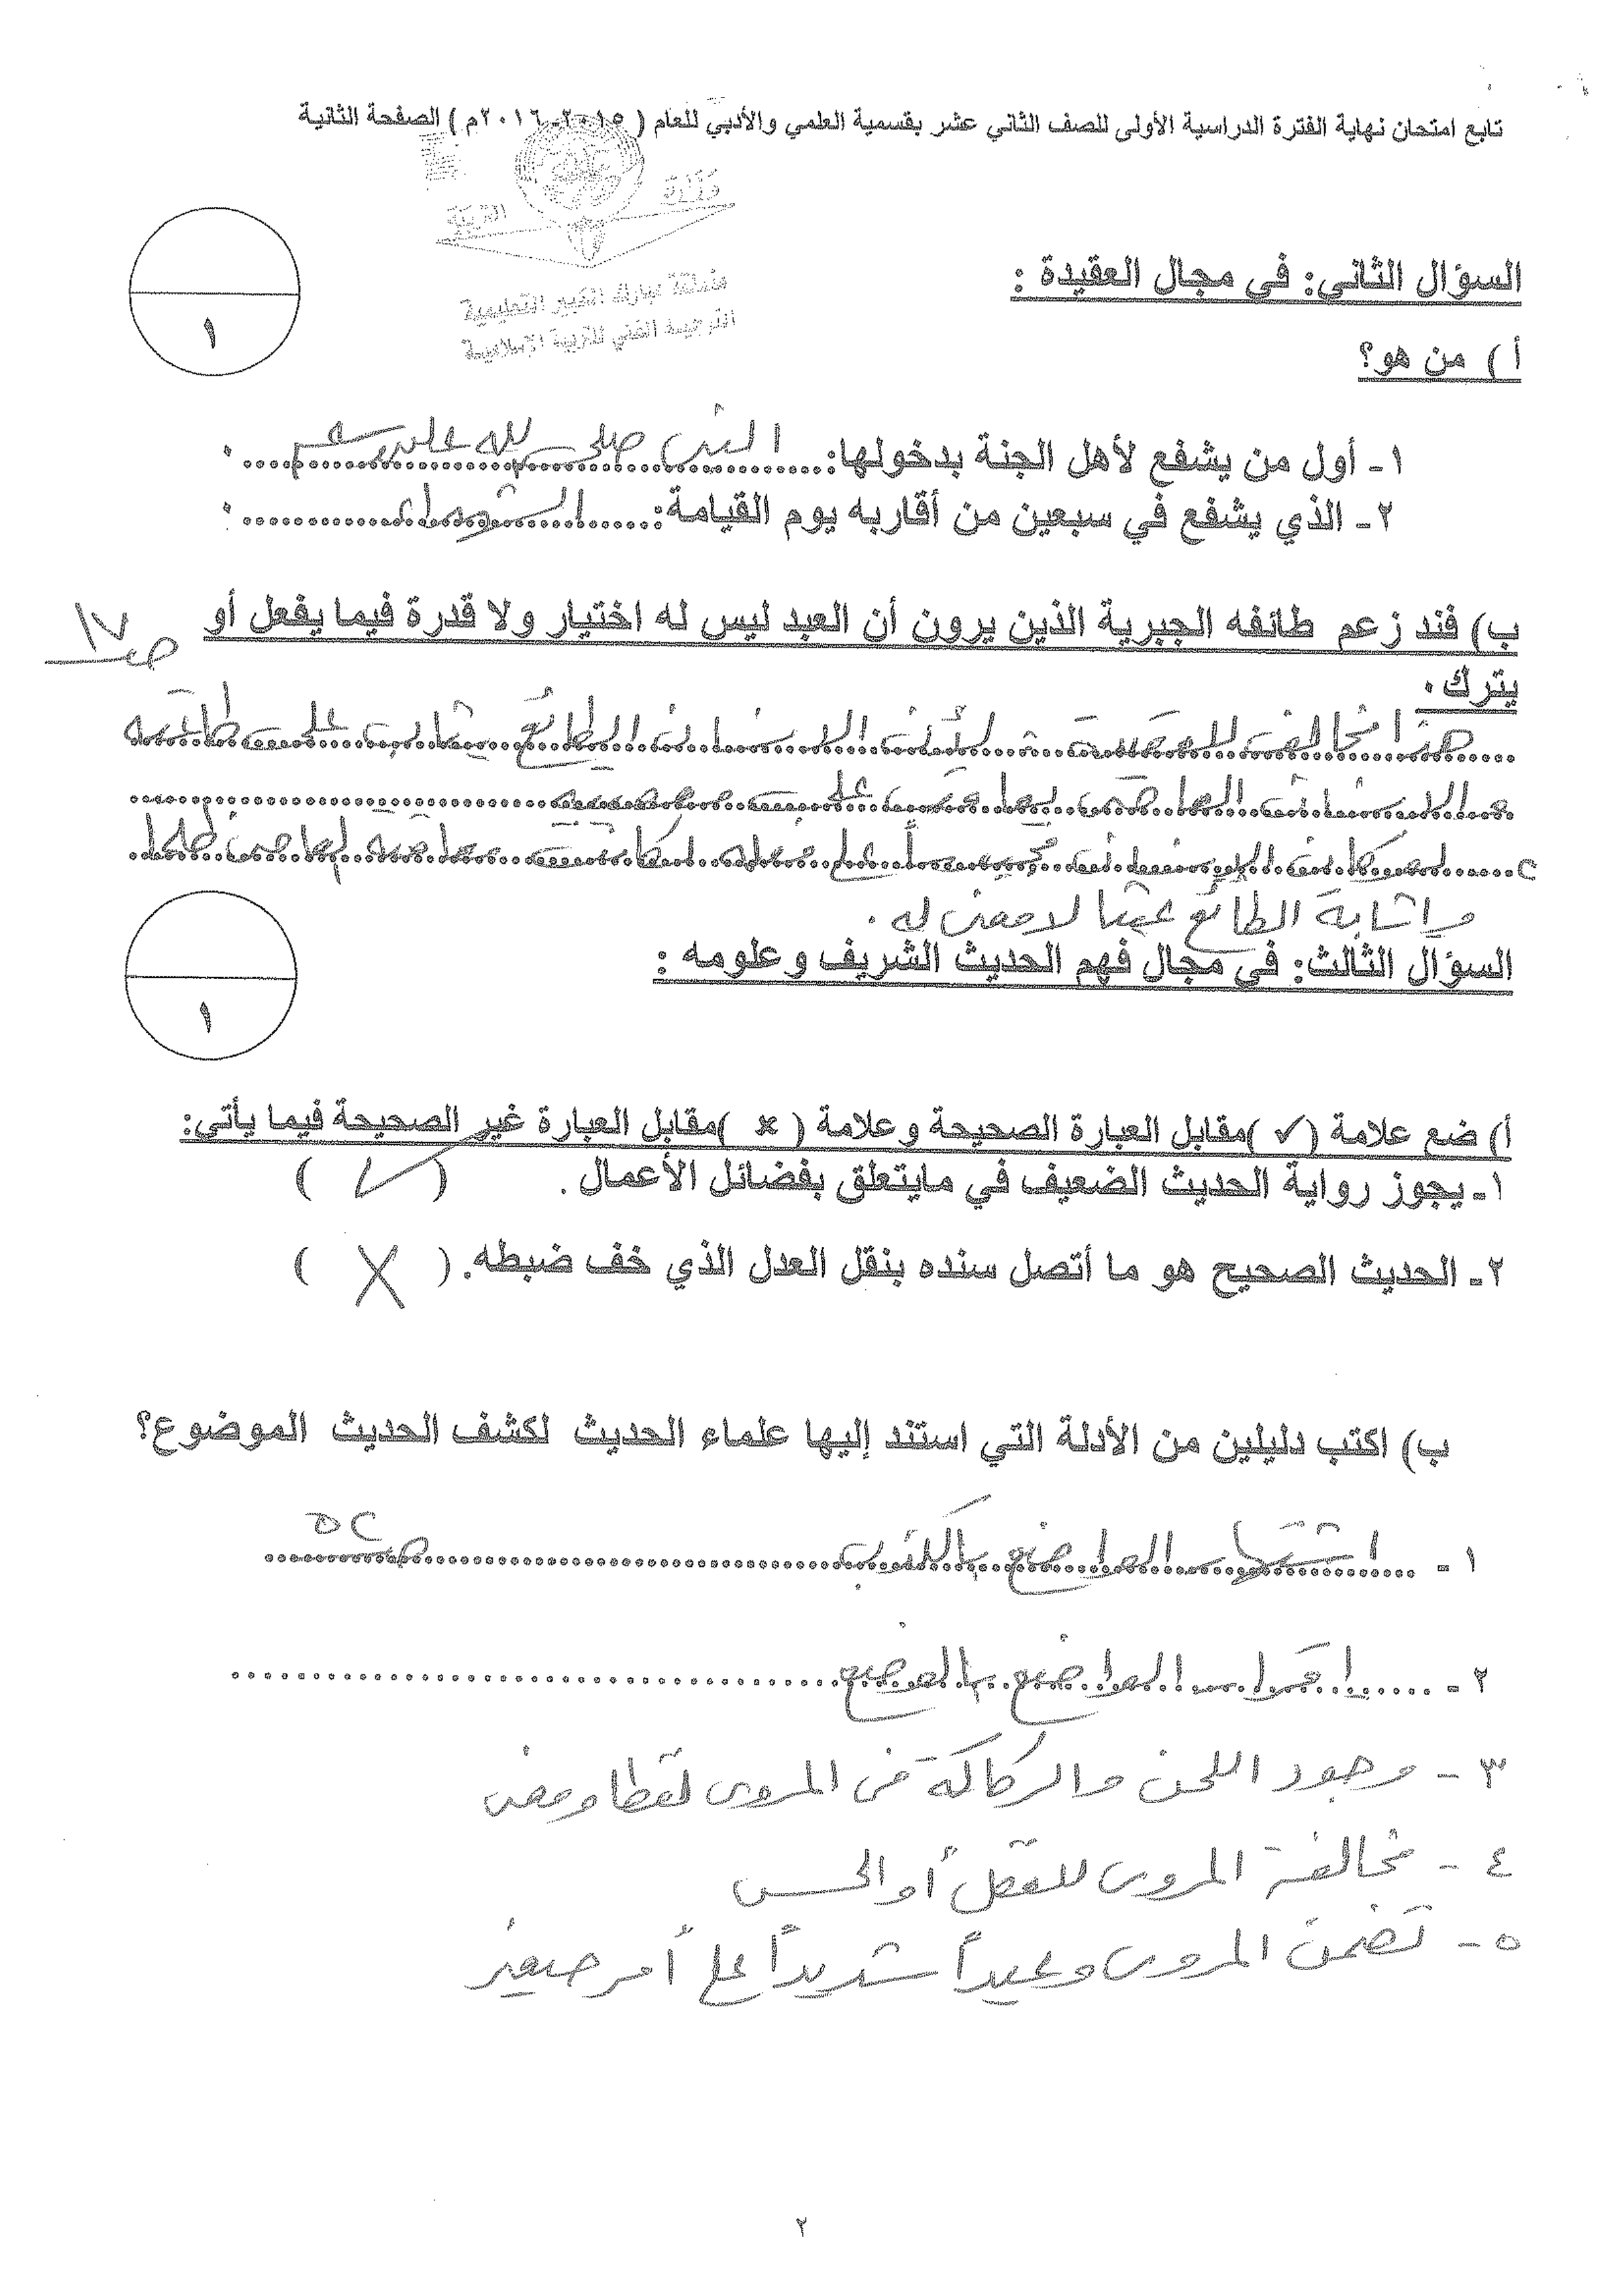 تابع امتحان نهاية الفترة الدراسية الأولى للصف الثاني عشر بقسمية العلمي والأدبي للعام ( ٢٠١٥-٢٠١٦م ) الصفحة الثانية
وزارة التربية
منطقة مبارك الكبير التعليمية
التوجيه الفني للتربية الإسلامية
السؤال الثاني: في مجال العقيدة :
١
أ ) من هو؟
١- أول من يشفع لأهل الجنة بدخولها: النبي صلى الله عليه وسلم .
٢- الذي يشفع في سبعين من أقاربه يوم القيامة: الشهداء .
ب) فند زعم طائفه الجبرية الذين يرون أن العبد ليس له اختيار ولا قدرة فيما يفعل أو
ص ١٧
يترك.
هذا مخالف للعقيدة : لأن الإنسان الطائع يثاب على طاعته
والإنسان العاصي يعاقب على معصيته
٢ لو كان الإنسان مجبراً على فعله لكانت معاقبة العاصي ظلما
وإثابة الطائع عبثا لا معنى له .
السؤال الثالث: في مجال فهم الحديث الشريف وعلومه :
١
أ) ضع علامة (✓)مقابل العبارة الصحيحة وعلامة ( × )مقابل العبارة غير الصحيحة فيما يأتي:
١- يجوز رواية الحديث الضعيف في مايتعلق بفضائل الأعمال . ( ✓ )
٢- الحديث الصحيح هو ما أتصل سنده بنقل العدل الذي خف ضبطه. ( X )
ب) اكتب دليلين من الأدلة التي استند إليها علماء الحديث لكشف الحديث الموضوع؟
١- اشتهار الواضع بالكذب ص ٥٢
٢- إقرار الواضع بالوضع
٣- وجود اللحن والركاكة في المروى لفظا ومعنى
٤- مخالفة المروى للعقل أو الحس
٥- تضمن المروى وعيداً شديداً على أمر صغير
٢